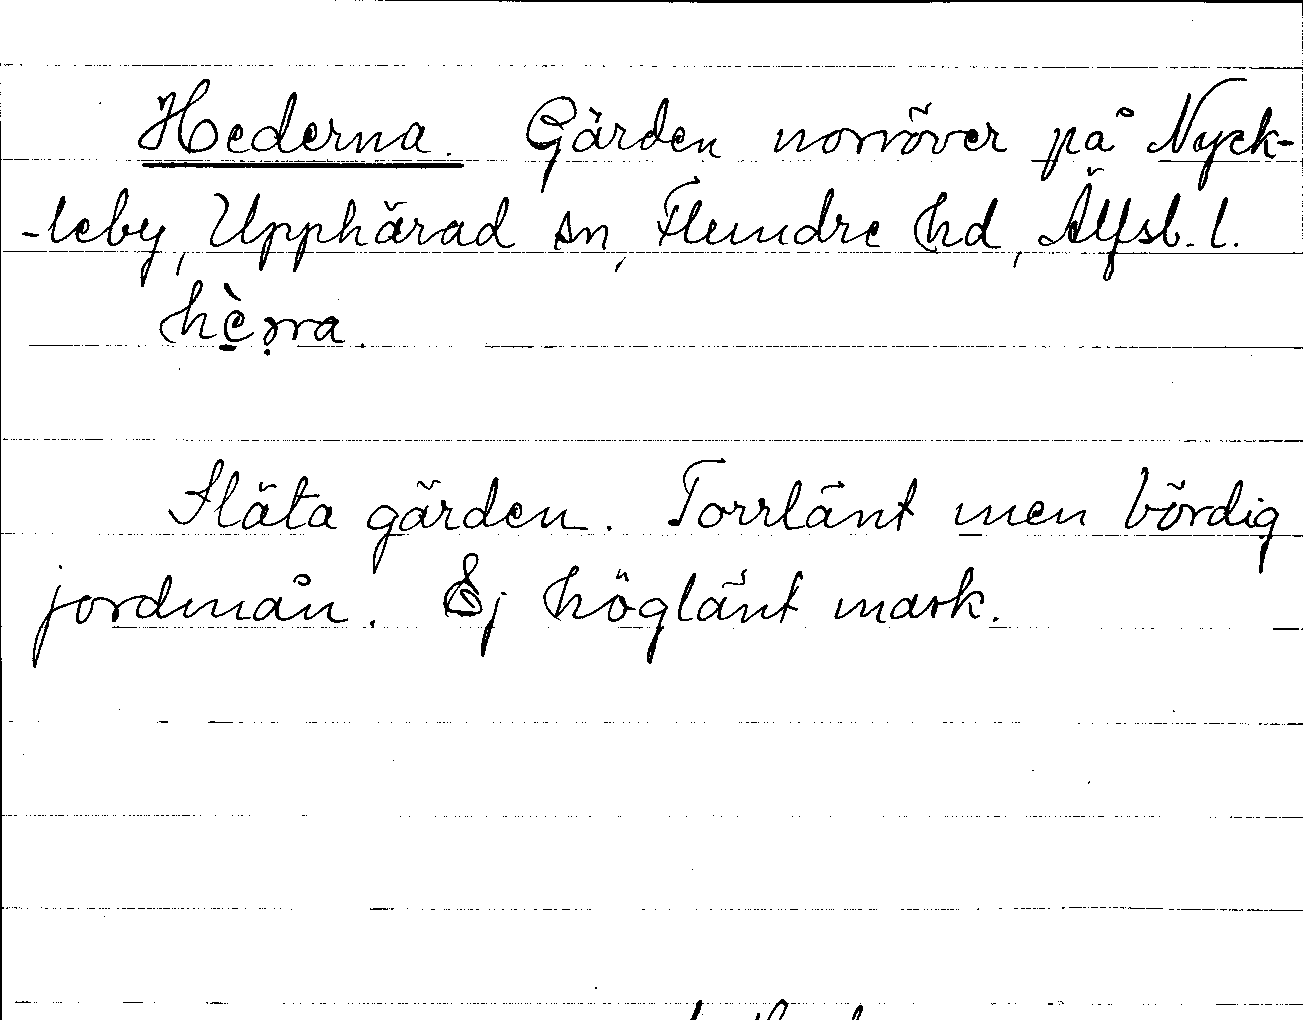 Hederna. Gärden norröver på Nyck-
-leby, Upphärad sn, Flundre hd, Älfsb. l.
hèrra.
Släta gärden. Torrlänt men bördig
jordmån. Ej höglänt mark.